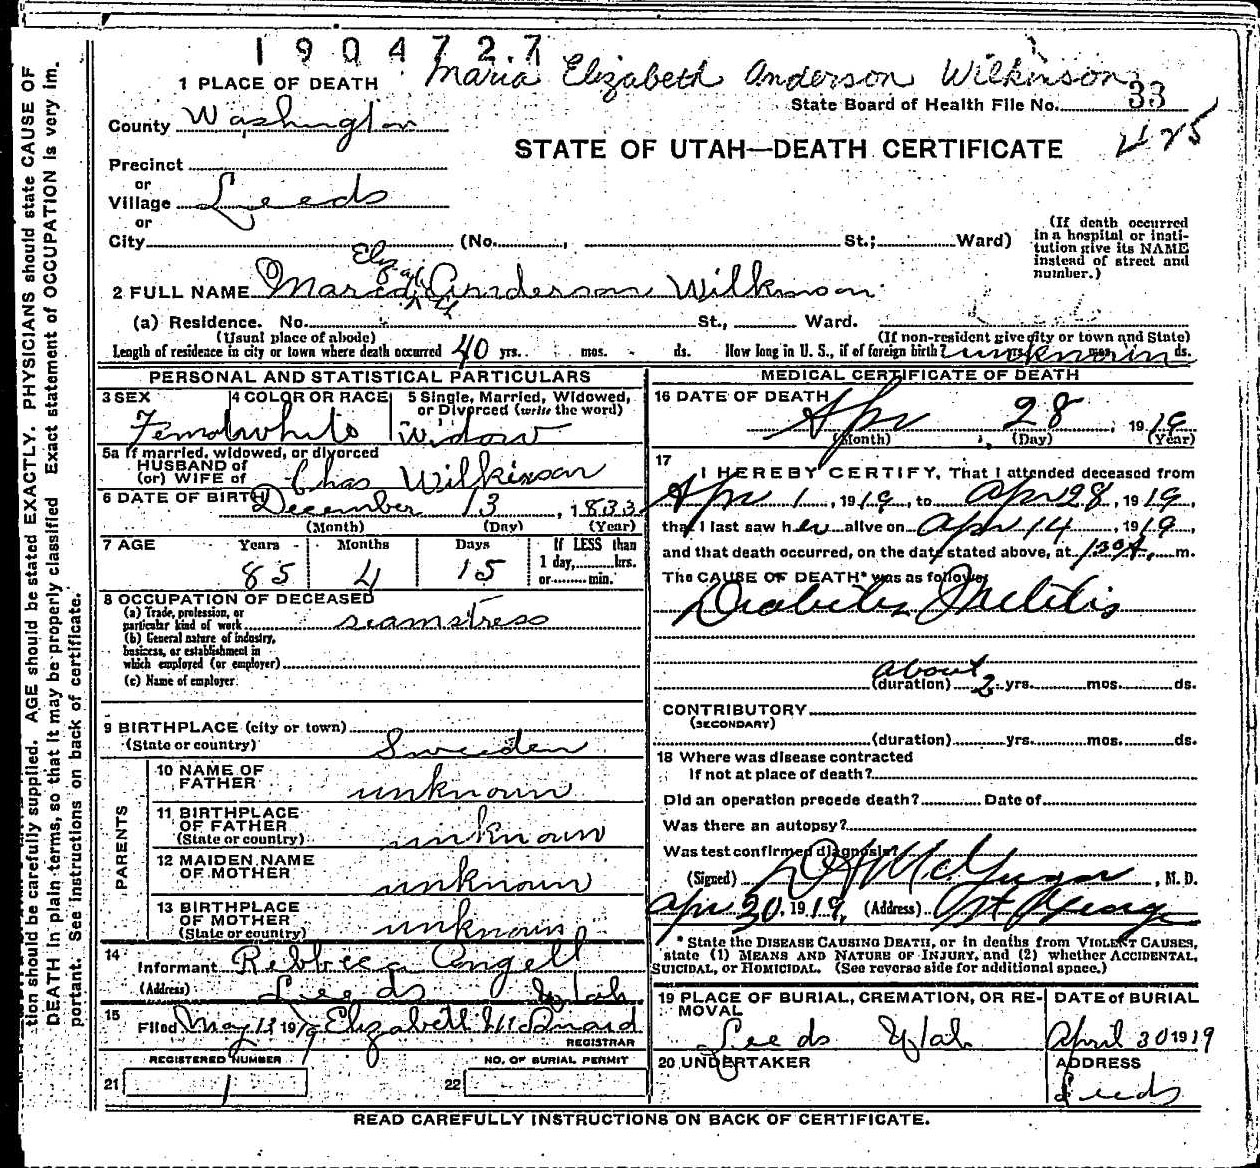 1904727
Maria Elizabeth Anderson Wilkinson
1 PLACE OF DEATH
State Board of Health File No. 33
County Washington
425
STATE OF UTAH—DEATH CERTIFICATE
Precinct
or
Village Leeds
or
City (No. , St.; Ward)
(If death occurred in a hospital or institution give its NAME instead of street and number.)
Elizabeth
2 FULL NAME Maria Anderson Wilkinson
(a) Residence. No. St., Ward. Leeds
(Usual place of abode) (If non-resident give city or town and State)
Length of residence in city or town where death occurred 40 yrs. mos. ds. How long in U. S., if of foreign birth? unknown yrs. mos. ds.
PERSONAL AND STATISTICAL PARTICULARS
3 SEX 4 COLOR OR RACE 5 Single, Married, Widowed, or Divorced (write the word)
Female white Widow
5a If married, widowed, or divorced
HUSBAND of
(or) WIFE of Chas Wilkinson
6 DATE OF BIRTH December 13, 1833
(Month) (Day) (Year)
7 AGE Years Months Days If LESS than
1 day, hrs.
or min.
85 4 15
8 OCCUPATION OF DECEASED
(a) Trade, profession, or
particular kind of work seamstress
(b) General nature of industry,
business, or establishment in
which employed (or employer)
(c) Name of employer
9 BIRTHPLACE (city or town)
(State or country) Sweeden
PARENTS
10 NAME OF
FATHER unknown
11 BIRTHPLACE
OF FATHER
(State or country) unknown
12 MAIDEN NAME
OF MOTHER unknown
13 BIRTHPLACE
OF MOTHER
(State or country) unknown
14
Informant Rebbeca Angell
(Address) Leeds Utah
15
Filed May 12 1919 Elizabeth McQuaid
REGISTRAR
REGISTERED NUMBER NO. OF BURIAL PERMIT
21 1 22
MEDICAL CERTIFICATE OF DEATH
16 DATE OF DEATH
Apr 28, 1919
(Month) (Day) (Year)
17
I HEREBY CERTIFY, That I attended deceased from
Apr 1, 1919, to Apr 28, 1919,
that I last saw her alive on Apr 14, 1919,
and that death occurred, on the date stated above, at 130 A. m.
The CAUSE OF DEATH* was as follows:
Diabetes Melitis
about
(duration) 2 yrs. mos. ds.
CONTRIBUTORY
(SECONDARY)
(duration) yrs. mos. ds.
18 Where was disease contracted
If not at place of death?
Did an operation precede death? Date of
Was there an autopsy?
Was test confirmed diagnosis?
(Signed) D A McGregor, M. D.
Apr 30, 1919, (Address) St George
* State the DISEASE CAUSING DEATH, or in deaths from VIOLENT CAUSES,
state (1) MEANS AND NATURE OF INJURY, and (2) whether ACCIDENTAL,
SUICIDAL, or HOMICIDAL. (See reverse side for additional space.)
19 PLACE OF BURIAL, CREMATION, OR REMOVAL DATE of BURIAL
Leeds Utah April 30 1919
20 UNDERTAKER ADDRESS
Leeds
READ CAREFULLY INSTRUCTIONS ON BACK OF CERTIFICATE.
tion should be carefully supplied. AGE should be stated EXACTLY. PHYSICIANS should state CAUSE OF
DEATH in plain terms, so that it may be properly classified Exact statement of OCCUPATION is very im-
portant. See instructions on back of certificate.